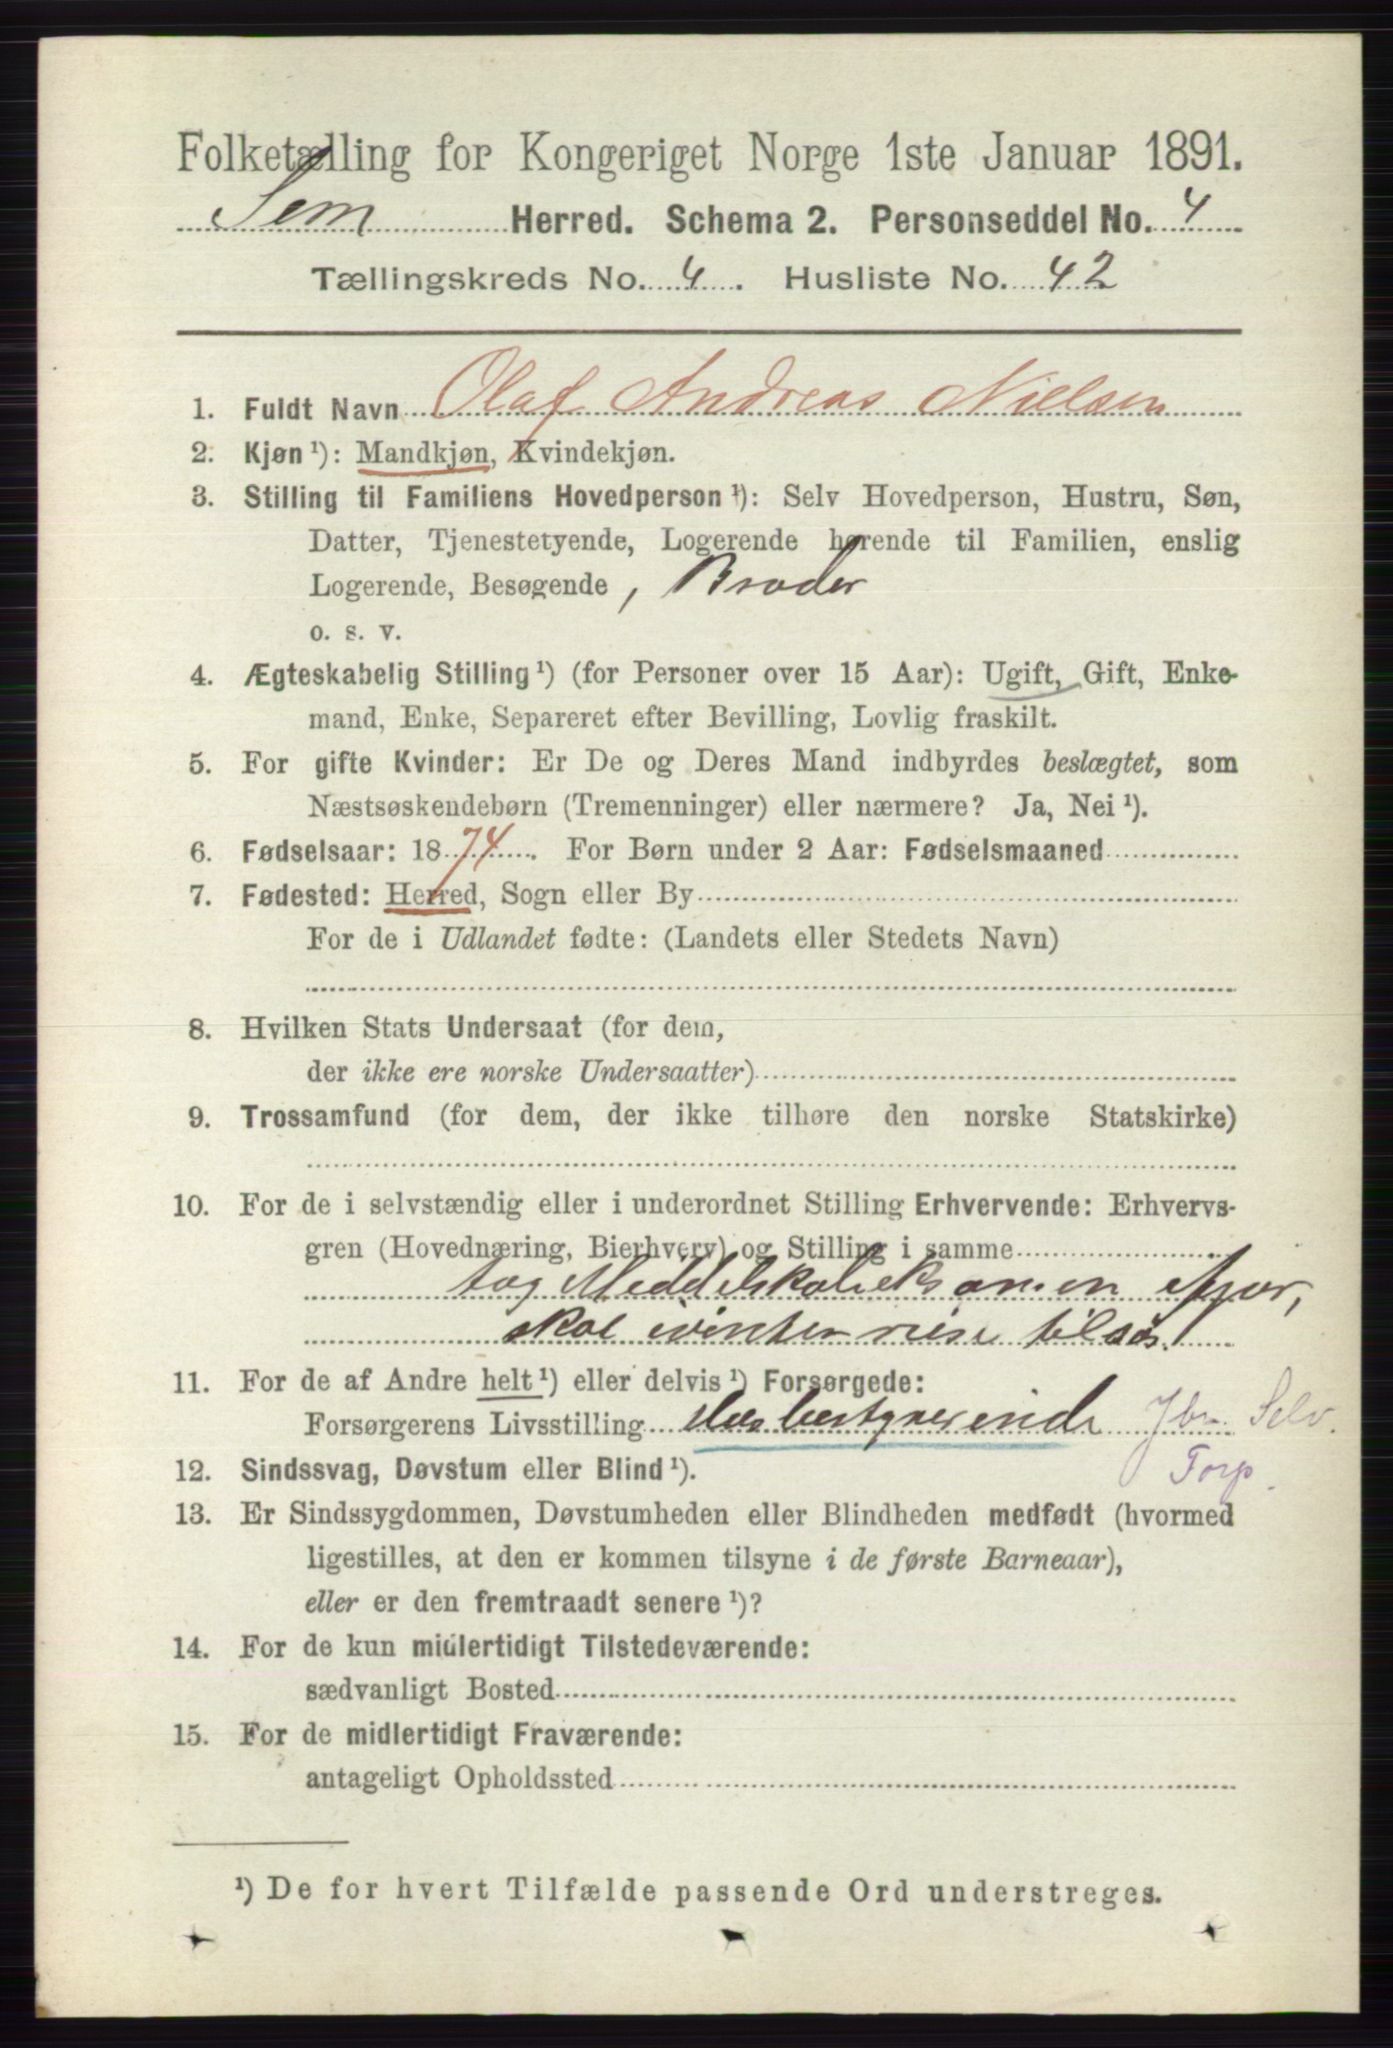 Folketælling for Kongeriget Norge 1ste Januar 1891.
Sem Herred. Schema 2. Personseddel No. 4
Tællingskreds No. 4. Husliste No. 42
1. Fuldt Navn Olaf Andreas Nielsen
2. Kjøn ¹): Mandkjøn, Kvindekjøn.
3. Stilling til Familiens Hovedperson ¹): Selv Hovedperson, Hustru, Søn,
Datter, Tjenestetyende, Logerende hørende til Familien, enslig
Logerende, Besøgende, Broder
o. s. v.
4. Ægteskabelig Stilling ¹) (for Personer over 15 Aar): Ugift, Gift, Enke-
mand, Enke, Separeret efter Bevilling, Lovlig fraskilt.
5. For gifte Kvinder: Er De og Deres Mand indbyrdes beslægtet, som
Næstsøskendebørn (Tremenninger) eller nærmere? Ja, Nei ¹).
6. Fødselsaar: 1874. For Børn under 2 Aar: Fødselsmaaned
7. Fødested: Herred, Sogn eller By
For de i Udlandet fødte: (Landets eller Stedets Navn)
8. Hvilken Stats Undersaat (for dem,
der ikke ere norske Undersaatter)
9. Trossamfund (for dem, der ikke tilhøre den norske Statskirke)
10. For de i selvstændig eller i underordnet Stilling Erhvervende: Erhvervs-
gren (Hovednæring, Bierhverv) og Stilling i samme
tog Meddelskoleeksamen ifjor,
skal ivinter reise tilsøs.
11. For de af Andre helt ¹) eller delvis ¹) Forsørgede:
Forsørgerens Livsstilling Husbestyrerinde Jbr. Selv.
Torp.
12. Sindssvag, Døvstum eller Blind ¹).
13. Er Sindssygdommen, Døvstumheden eller Blindheden medfødt (hvormed
ligestilles, at den er kommen tilsyne i de første Barneaar),
eller er den fremtraadt senere ¹)?
14. For de kun midlertidigt Tilstedeværende:
sædvanligt Bosted
15. For de midlertidigt Fraværende:
antageligt Opholdssted
¹) De for hvert Tilfælde passende Ord understreges.